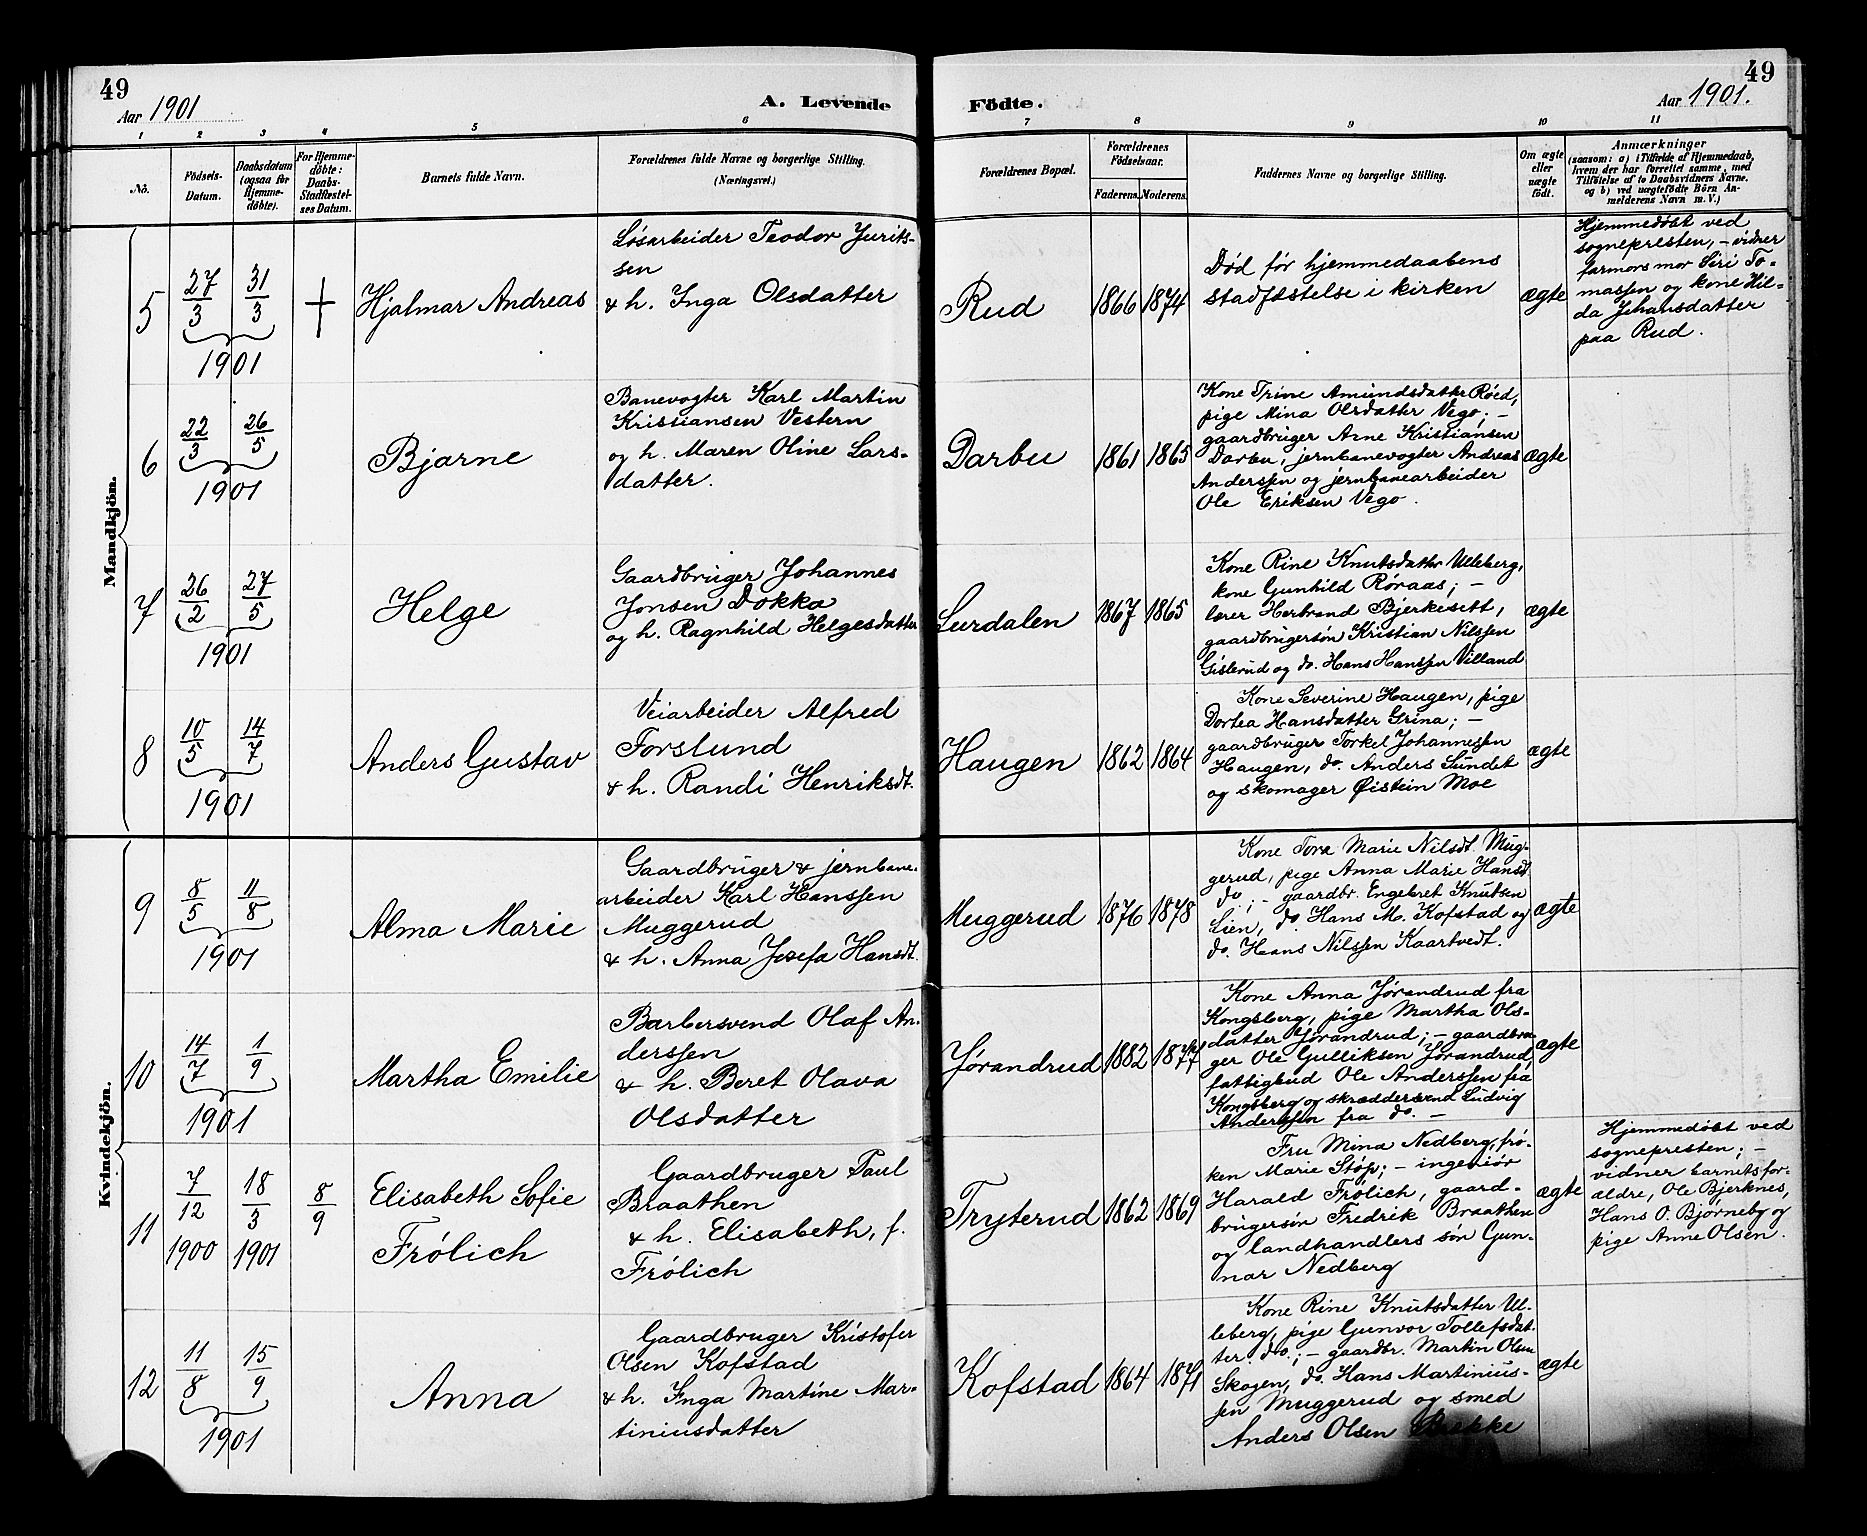 49
Aar 1901
A. Levende
Födte.
49
Aar 1901.
1
2
3
4
5
6
7
8
9
10
11
No.
Födsels-
Datum.
Daabsdatum
(ogsaa for
Hjemme-
döbte).
For Hjemme-
döbte:
Daabs-
Stadfæstel-
ses Datum.
Barnets fulde Navn.
Forældrenes fulde Navne og borgerlige Stilling.
(Næringsvei.)
Forældrenes Bopæl.
Forældrenes
Födselsaar.
Faderens.
Moderens.
Faddernes Navne og borgerlige Stilling.
Om ægte
eller
uægte
födt.
Anmærkninger
(saasom: a) i Tilfælde af Hjemmedaab,
hvem der har forrettet samme, med
Tilföielse af to Daabsvidners Navne.
og b) ved uægtefödte Börn An-
melderens Navn m. V.)
Mandkjön.
5
27/3
31/3
1901
†
Hjalmar Andreas
Løsarbeider Teodor Jurits-
sen
& h. Inga Olsdatter
Rud
1866
1874
Død før hjemmedaabens
stadfæstelse i kirken
ægte
Hjemmedøbt ved
sognepresten, – vidner
farmors mor Siri To-
massen og kone Hil-
da Johansdatter
paa Rud.
6
22/3
26/5
1901
Bjarne
Banevogter Karl Martin
Kristiansen Vestern
og h. Maren Oline Lars-
datter.
Darbu
1861
1865
Kone Trine Amundsdatter Røed,
pige Mina Olsdatter Vego; –
gaardbruger Arne Kristiansen
Darbu, jernbanevogter Andreas
Anderssen og jernbanearbeider
Ole Eriksen Vego.
ægte
7
26/2
27/5
1901
Helge
Gaardbruger Johannes
Jonsen Dokka
og h. Ragnhild Helgesdatter
Lurdalen
1867
1865
Kone Rine Knutsdatter Ulleberg,
kone Gunhild Røraas; –
lærer Herbrand Bjerkesett,
gaardbrugersøn Kristian Nilssen
Gislerud og do. Hans Hanssen Villand
ægte
8
10/5
14/7
1901
Anders Gustav
Veiarbeider Alfred
Forslund
& h. Randi Henriksdt.
Haugen
1862
1864
Kone Severine Haugen, pige
Dortea Hansdatter Grina; –
gaardbruger Torkel Johannessen
Haugen, do. Anders Sundet
og skomager Øistein Moe
ægte
Kvindekjön.
9
8/5
11/8
1901
Alma Marie
Gaardbruger & jernbane-
arbeider Karl Hanssen
Muggerud
& h. Anna Josefa Hansdt.
Muggerud
1876
1878
Kone Tora Marie Nilsdt. Mug-
gerud, pige Anna Marie Hansd.
do.; – gaardbr. Engebret Knutsen
Lien, do. Hans M. Kofstad og
do. Hans Nilssen Kaartvedt.
ægte
10
14/7
1/9
1901
Martha Emilie
Barbersvend Olaf An-
derssen
& h. Beret Olava
Olsdatter
Jørandrud
1882
1877
Kone Anna Jørandrud fra
Kongsberg, pige Martha Ols-
datter Jørandrud; – gaardbru-
ger Ole Gulliksen Jørandrud,
fattigbud Ole Anderssen fra
Kongsberg og skræddersvend Ludvig
Anderssen fra do. –
ægte
11
7/12
18/3
8/9
1900
1901
Elisabeth Sofie
Frölich
Gaardbruger Paul
Braathen
& h. Elisabeth, f.
Frölich
Tryterud
1862
1869
Fru Mina Nedberg, frö-
ken Marie Støp; – ingeniör
Harald Frölich, gaard-
brugersøn Fredrik Braathen
og landhandlers søn Gun-
nar Nedberg
ægte
Hjemmedøbt ved
sognepresten; –
vidner barnets for-
ældre, Ole Bjerknes,
Hans O. Bjørneby og
pige Anne Olsen.
12
11/8
15/9
1901
Anna
Gaardbruger Kristofer
Olsen Kofstad
& h. Inga Martine Mar-
tiniusdatter
Kofstad
1864
1871
Kone Rine Knutsdatter Ul-
leberg, pige Gunvor Tollefsdat-
ter do.; – gaardbr. Martin Olsen
Skogen, do. Hans Martinius-
sen Muggerud og smed
Anders Olsen Bakke
ægte